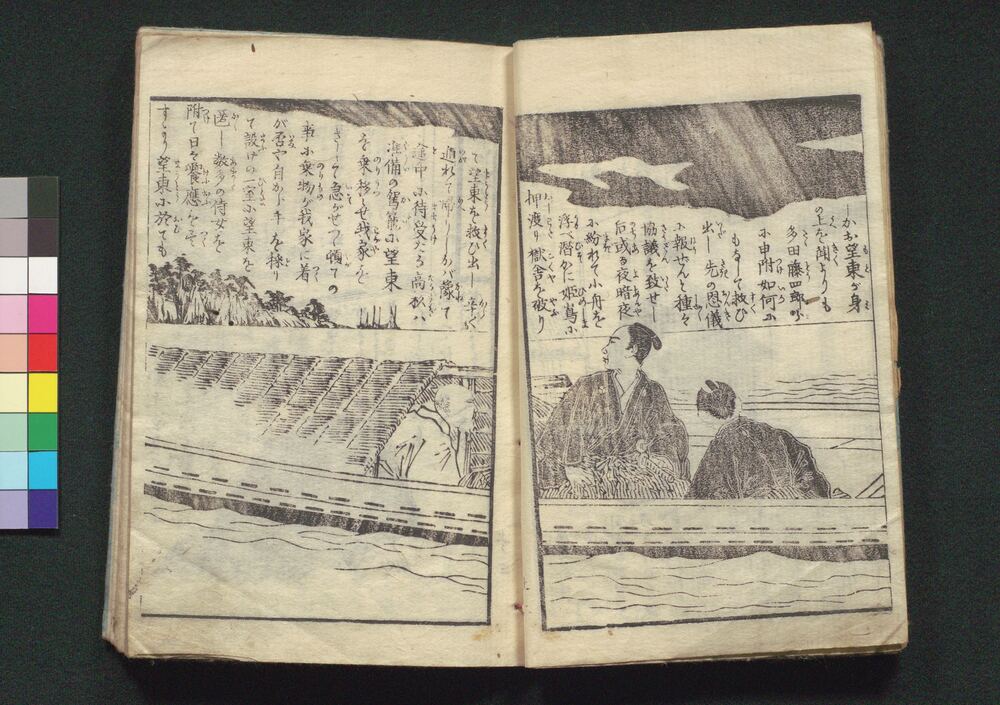 しかお望東が身
の上を聞よりも
多田藤四郎等
に申附如何に
もなして救ひ
出し先の恩儀
に報せんと種々
協議を致せし
后或る夜暗夜
に紛れて小舟を
浮べ潜かに姫嶌に
押渡り獄舎を破り
て望東を救ひ出し辛く
遁れて帰りしかバ蒙て
途中に待受たる高杦ハ
準備の駕籠に望東
を乗移らせ我家を
さして急がせつつ頓ての
事に乗物が我家に着
が否や自から手を採り
て設けの一室に望東を
匿し数多の侍女を
附て日々饗應なせど
すより望東に於ても